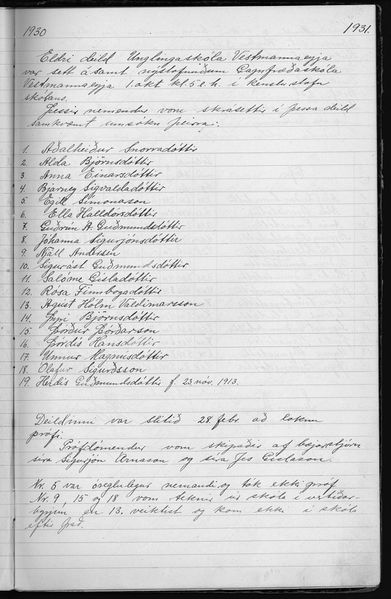 1930 1931.
Eldri deild Unglingaskóla Vestmannaeyja
var sett ásamt nýstofnuðum Gagnfræðaskóla
Vestmannaeyja 1. okt kl 5 e.h. í kenslustofu
skólans.
Þessir nemendur vom skrásettir í þessa deild
samkvæmt umsókn þeirra:
1. Aðalheiður Snorradóttir
2. Alda Björnsdóttir
3. Anna Einarsdóttir
4. Bjarney Sigvaldadóttir
5. Egill Símonarson
6. Ella Halldórsdóttir
7. Guðrún A. Guðmundsdóttir
8. Jóhanna Sigurjónsdóttir
9. Njáll Andersen
10. Sigurást Guðmundsdóttir
11. Salóme Gísladóttir
12. Rósa Finnbogadóttir
13. Ágúst Hólm Valdimarsson
14. Björnsdóttir
15. Þórður Þórðarson
16. Þórdís Hansdóttir
17. Unnur Magnúsdóttir
18. Ólafur Sigurðsson
19. Herdís Guðmundsdóttir f. 23 nóv. 1913.
Deildinni var slitið 28 febr. að loknu
prófi.
Prófdómendur vom skipaðir af bæjarstjórn
síra Sigurjón Árnason og síra Jes Gíslason.
Nr. 5 var óreglulegur nemandi og tók ekki próf
Nr. 9, 15 og 18 vom teknir úr skóla í vertíðar-
byrjun en 13. veiktist og kom ekki í skóla
eftir það.